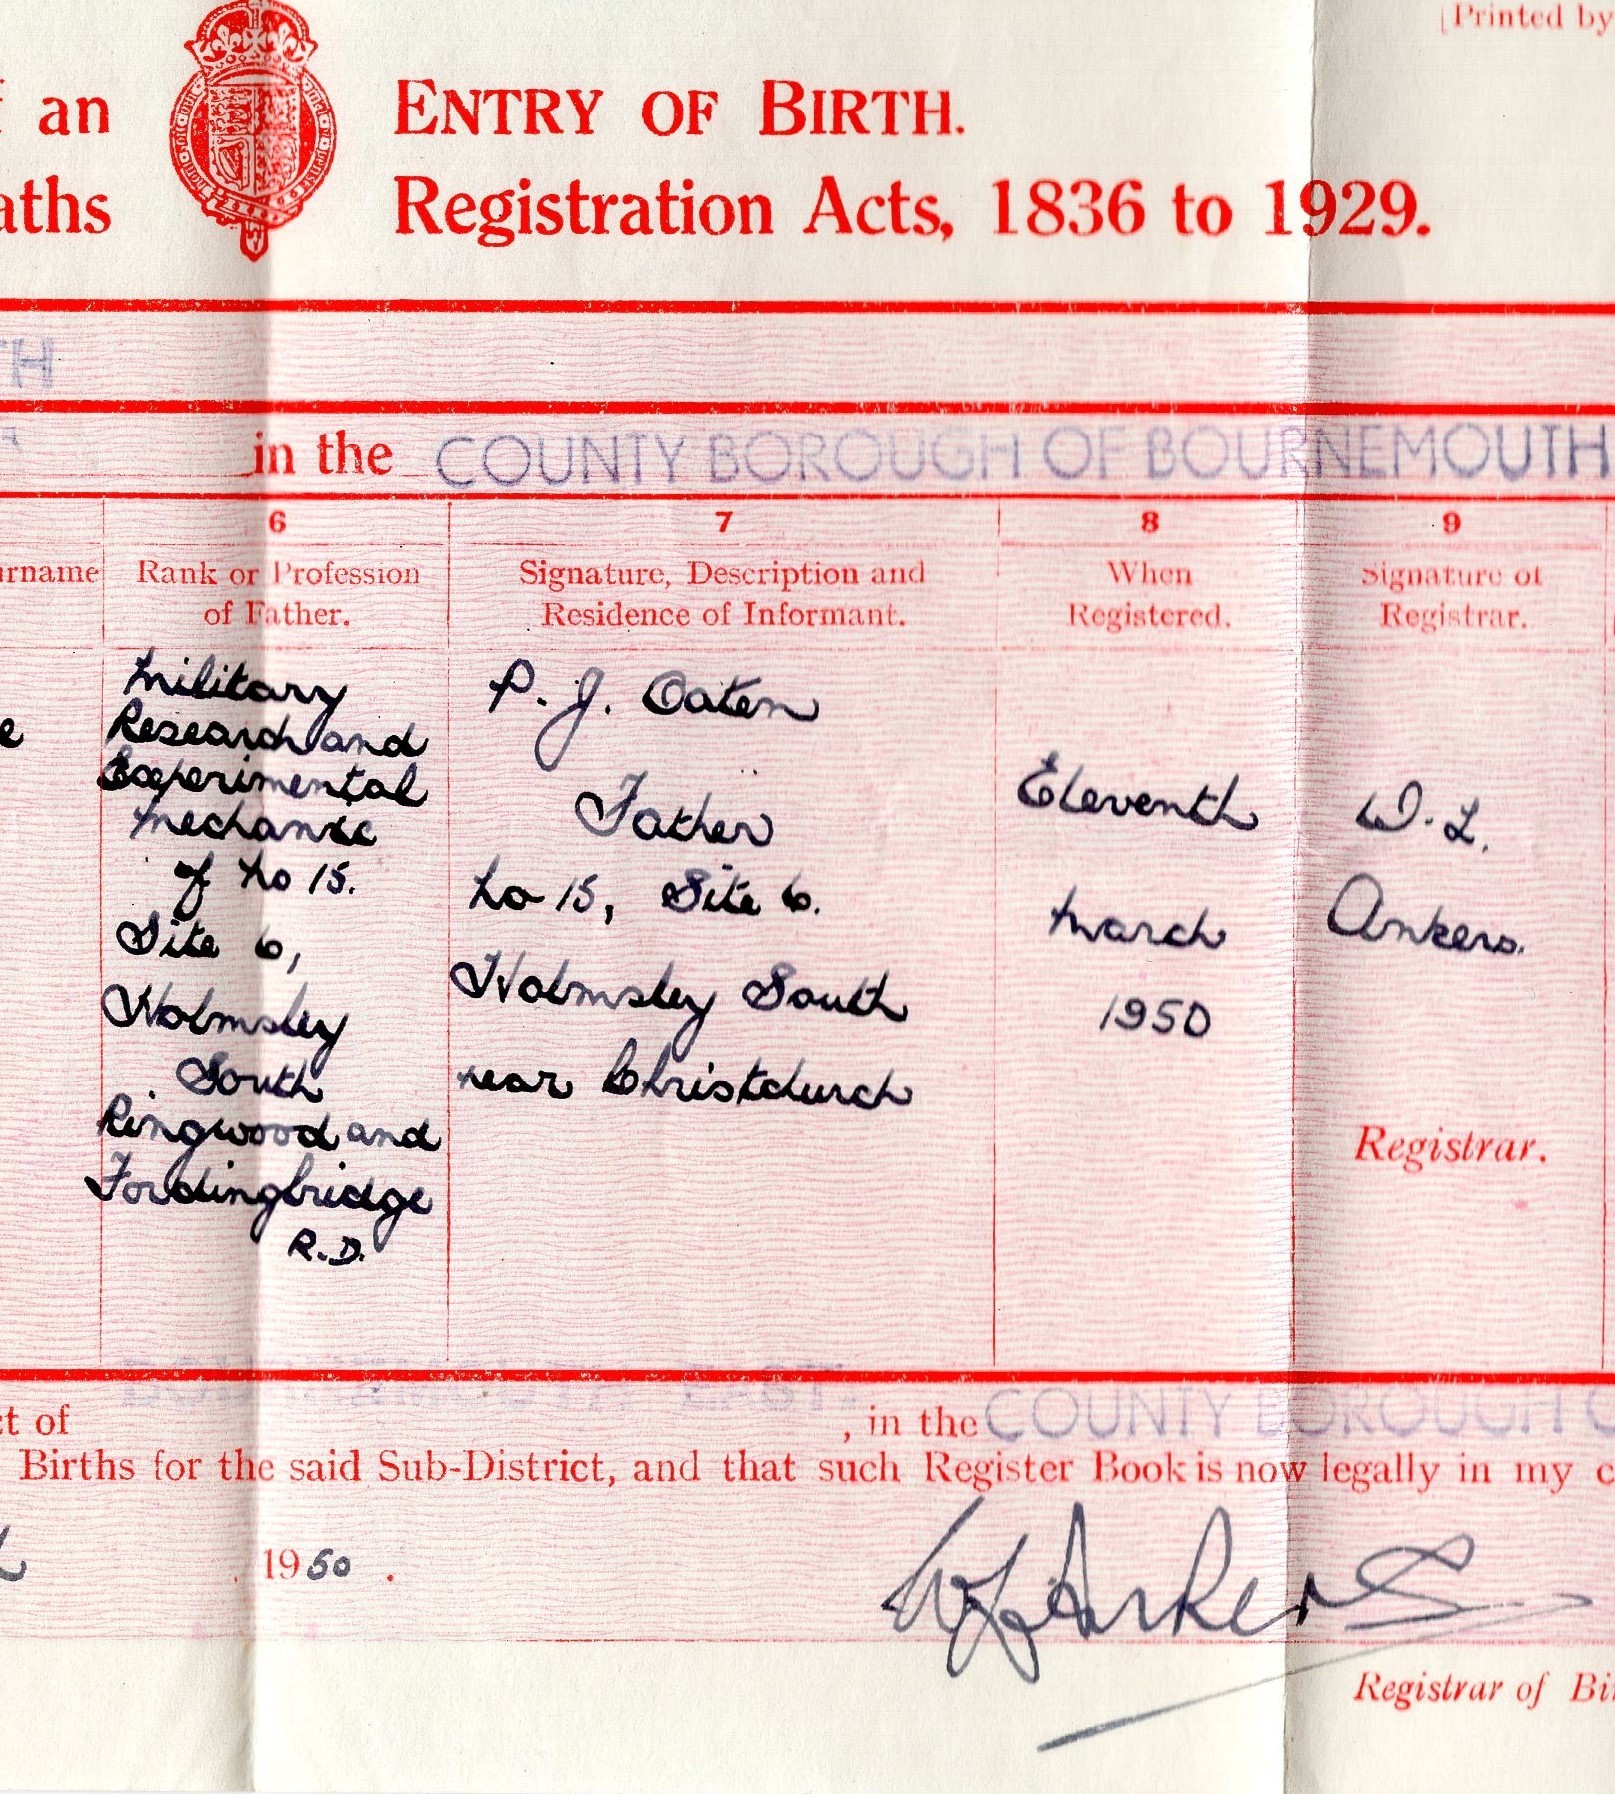 [Printed by
an
ENTRY OF BIRTH.
aths
Registration Acts, 1836 to 1929.
TH
in the COUNTY BOROUGH OF BOURNEMOUTH
6 7 8 9
urname
Rank or Profession
of Father.
Signature, Description and
Residence of Informant.
When
Registered.
Signature of
Registrar.
e
Military
Research and
Experimental
Mechanic
of No 15.
Site 6,
Holmsley
South
Ringwood and
Fordingbridge
R.D.
P. J. Oaten
Father
No 15, Site 6.
Holmsley South
near Christchurch
Eleventh
March
1950
W. L.
Ankers.
Registrar.
ct of BOURNEMOUTH EAST. , in the COUNTY BOROUGH O
Births for the said Sub-District, and that such Register Book is now legally in my c
1950 .
W L Ankers
Registrar of Bi